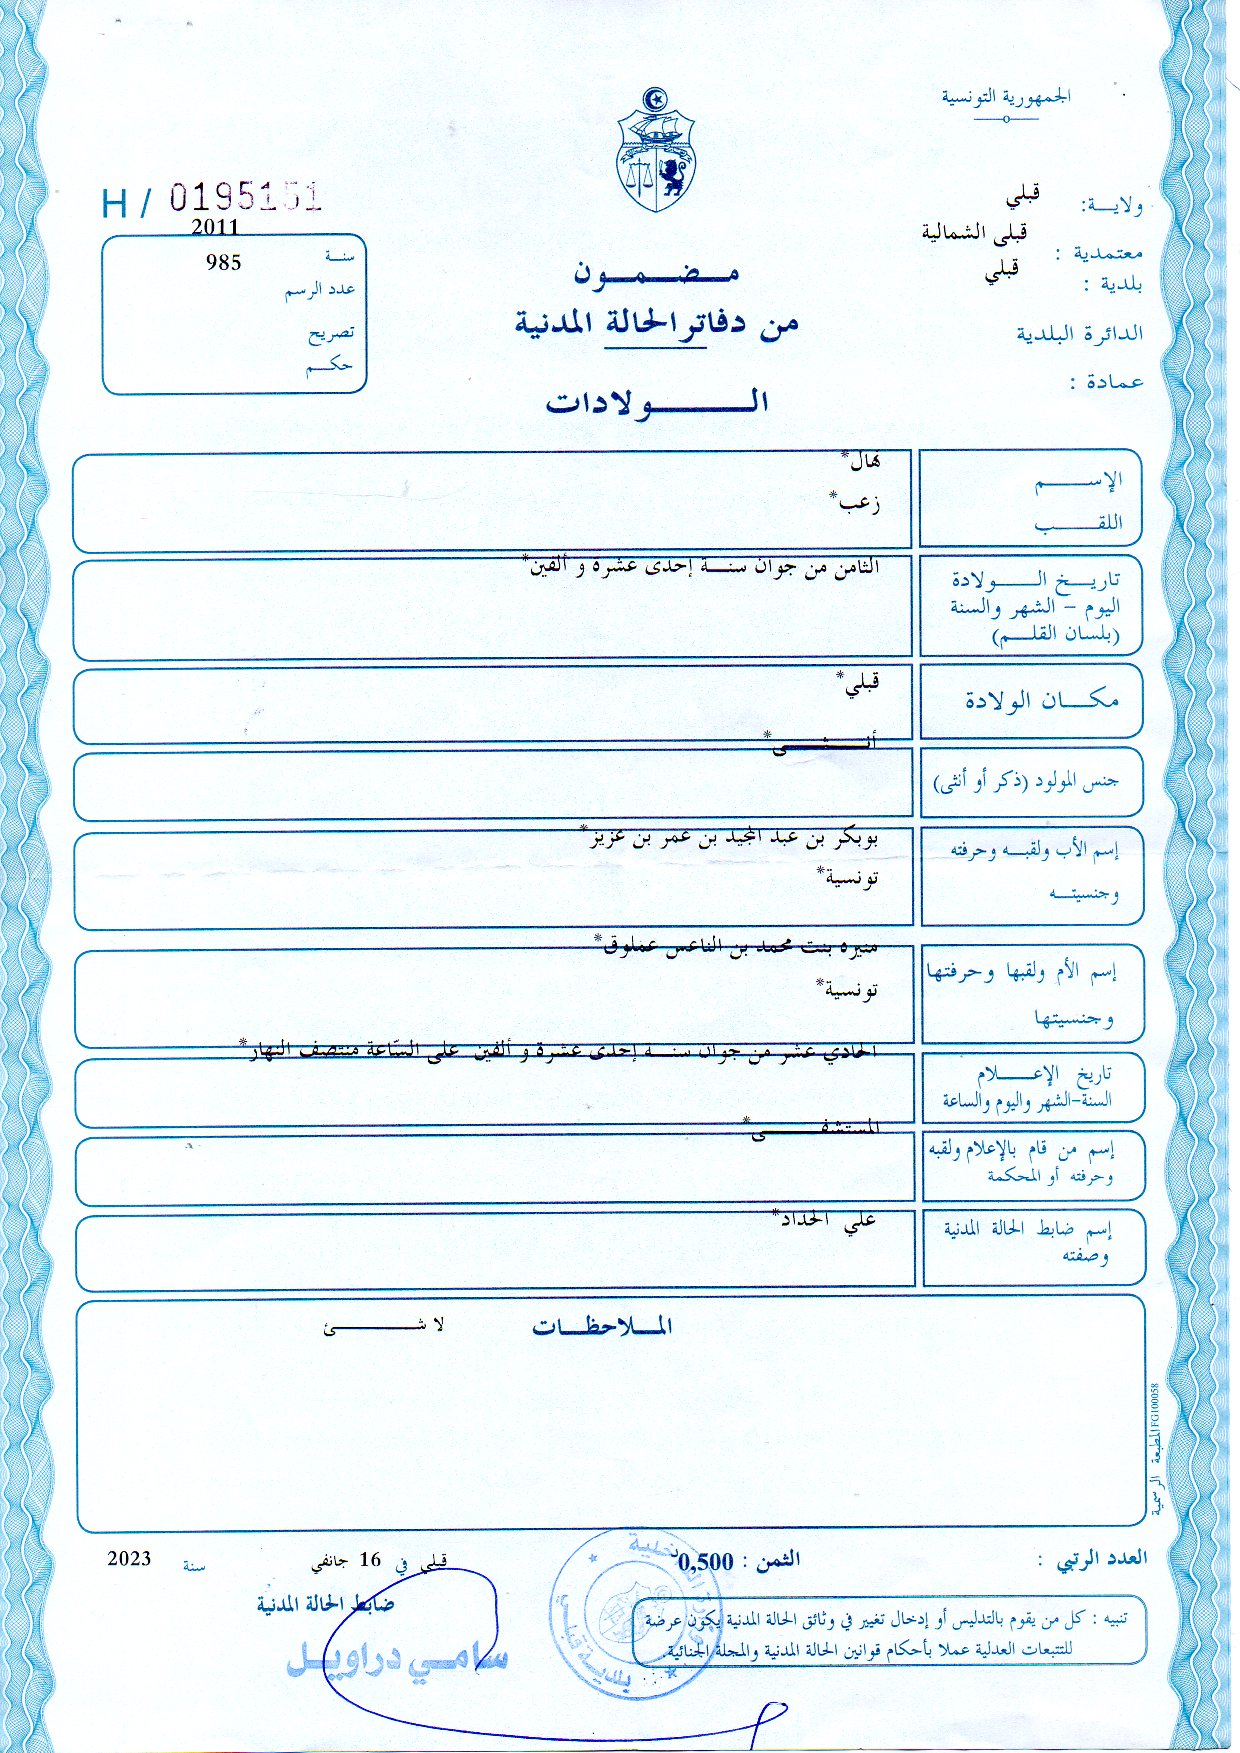 الجمهورية التونسية
ولايـــة: قبلي
معتمدية : قبلى الشمالية
بلدية : قبلي
الدائرة البلدية
عمادة :
H / 0195151
2011
سنـة
985
عدد الرسم
تصريح
حكـــم
مـــضـــمـــون
من دفاتر الحالة المدنية
الـــــولادات
الإســــــم
نهال*
اللقـــــب
زعب*
تاريـــخ الـــــولادة
اليوم - الشهر والسنة
(بلسان القلـــم)
الثامن من جوان سنـــة إحدى عشرة و ألفين*
مكـــان الولادة
قبلي*
جنس المولود (ذكر أو أنثى)
أنـــثـــــى*
إسم الأب ولقبـــه وحرفته
وجنسيتـــه
بوبكر بن عبد المجيد بن عمر بن عزيز*
تونسية*
إسم الأم ولقبها وحرفتها
وجنسيتها
منيره بنت محمد بن الناعس عملوق*
تونسية*
تاريخ الإعـــــلام
السنة-الشهر واليوم والساعة
الحادي عشر من جوان سنـــة إحدى عشرة و ألفين على السّاعة منتصف النهار*
إسم من قام بالإعلام ولقبه
وحرفته أو المحكمة
المستشفـــــى*
إسم ضابط الحالة المدنية
وصفته
علي الحداد*
المــلاحظــات
لا شـــــــئ
المطبعة الرسمية FG100058
العدد الرتبي :
الثمن : 0,500د
قبلي في 16 جانفي سنة 2023
ضابط الحالة المدنية
سامـي دراويــل
بلدية قبلي
تنبيه : كل من يقوم بالتدليس أو إدخال تغيير في وثائق الحالة المدنية يكون عرضة
للتتبعات العدلية عملا بأحكام قوانين الحالة المدنية والمجلة الجنائية.